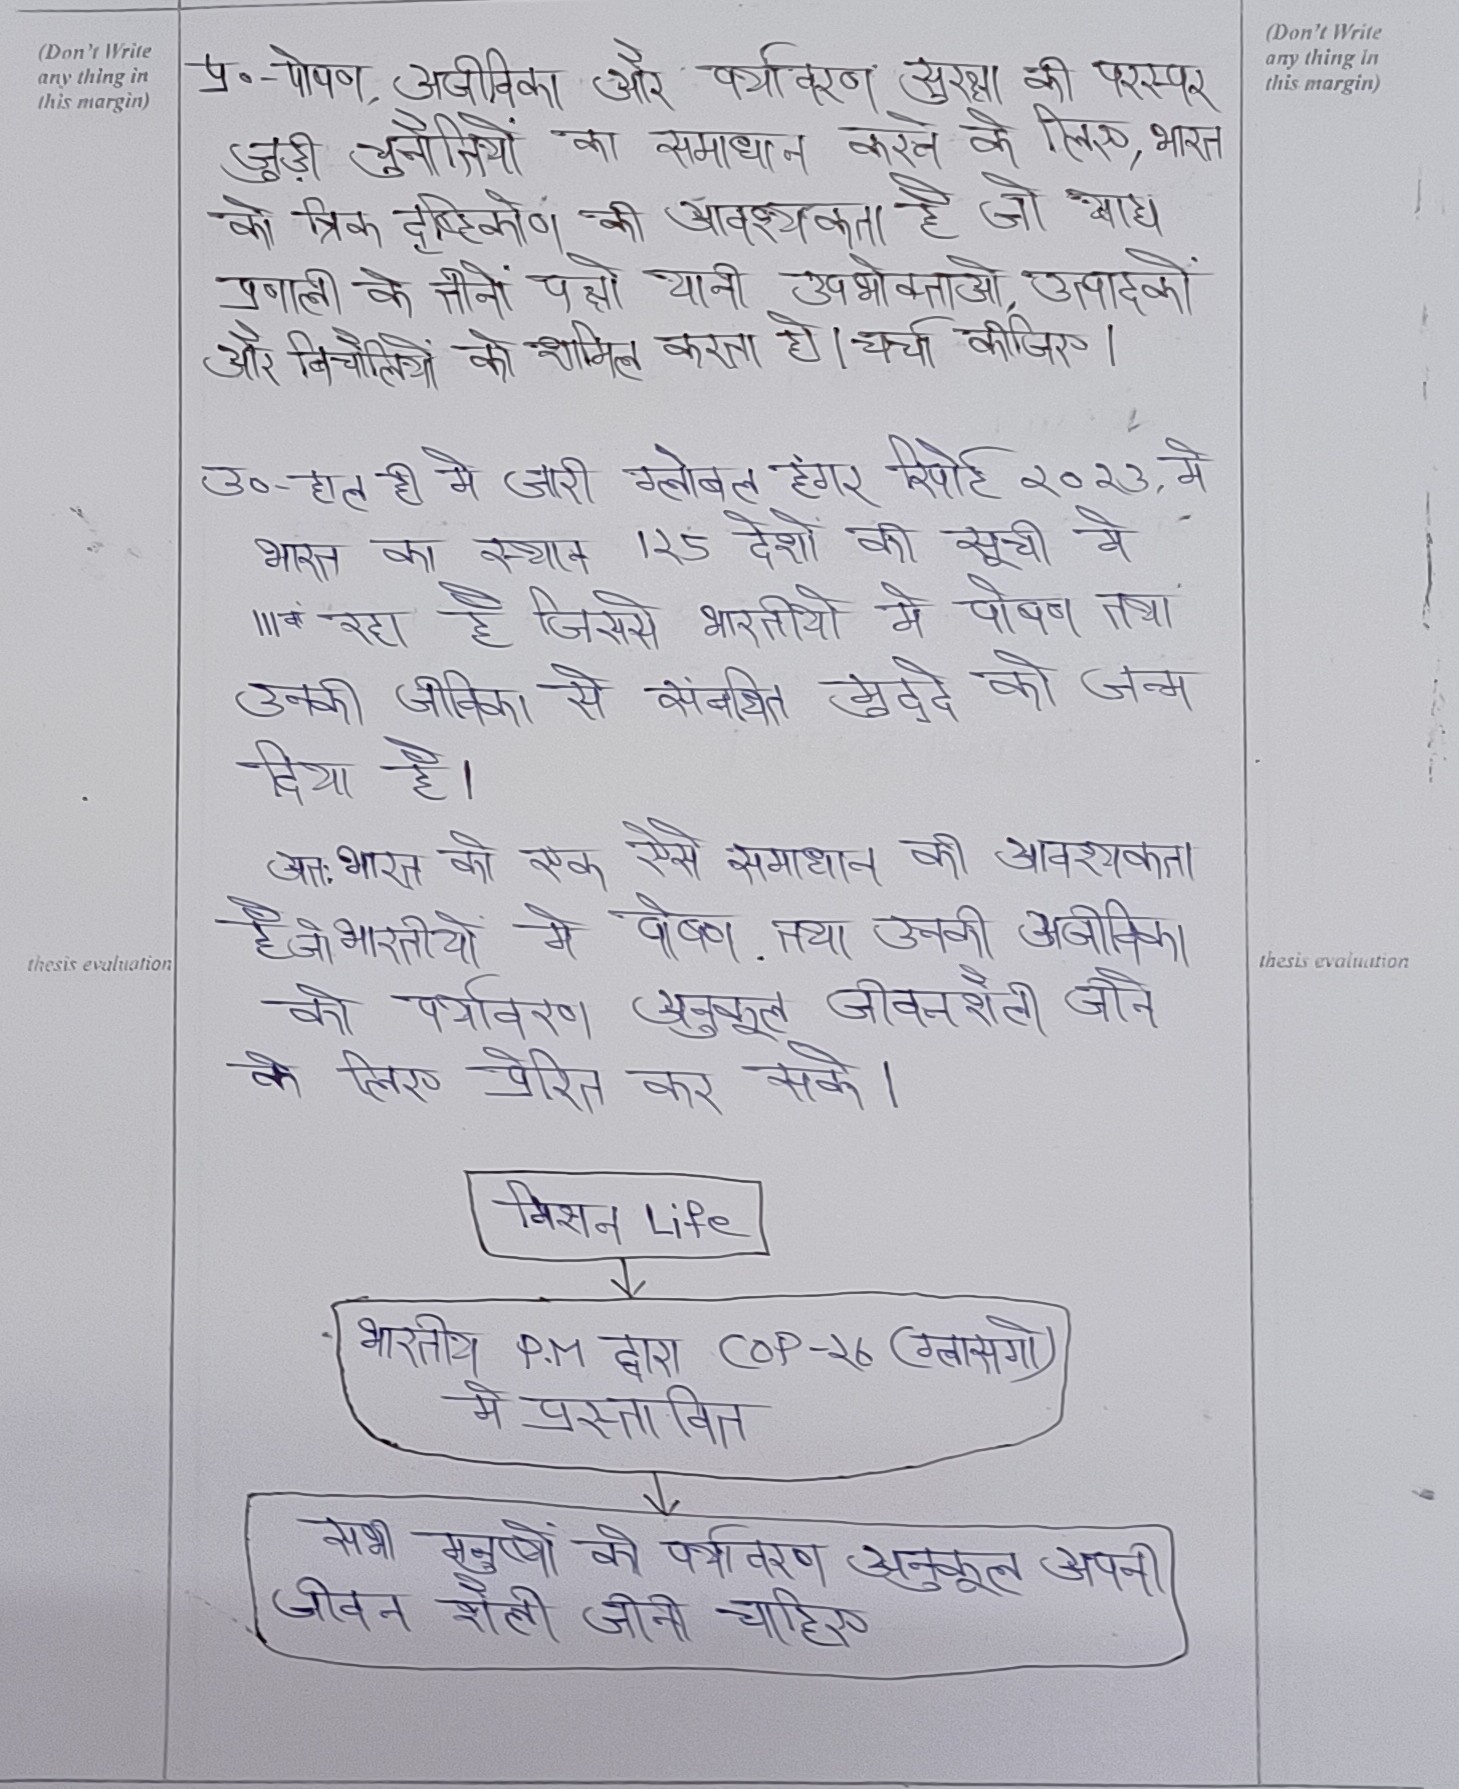 (Don't Write
any thing in
this margin)
(Don't Write
any thing in
this margin)
प्र०-पोषण, अजीविका और पर्यावरण सुरक्षा की परस्पर
जुड़ी चुनौतियों का समाधान करने के लिए, भारत
को त्रिक दृष्टिकोण की आवश्यकता है जो खाद्य
प्रणाली के तीनों पक्षो यानी उपभोक्ताओ, उत्पादकों
और बिचौलियों को शामिल करता हो। चर्चा कीजिए।
उ०-हाल ही मे जारी ग्लोबल हंगर रिपोर्ट २०२३, मे
भारत का स्थान 125 देशों की सूची मे
111वां रहा है जिससे भारतीयो मे पोषण तथा
उनकी जीविका से संबधित मुद्दे को जन्म
दिया है।
अतः भारत को एक ऐसे समाधान की आवश्यकता
है जो भारतीयों मे पोषण तथा उनकी अजीविका
को पर्यावरण अनुकूल जीवनशैली जीने
के लिए प्रेरित कर सके।
thesis evaluation
thesis evaluation
मिशन Life
भारतीय P.M द्वारा COP-26 (ग्लासगो)
मे प्रस्तावित
सभी मनुष्यों को पर्यावरण अनुकूल अपनी
जीवन शैली जीनी चाहिए